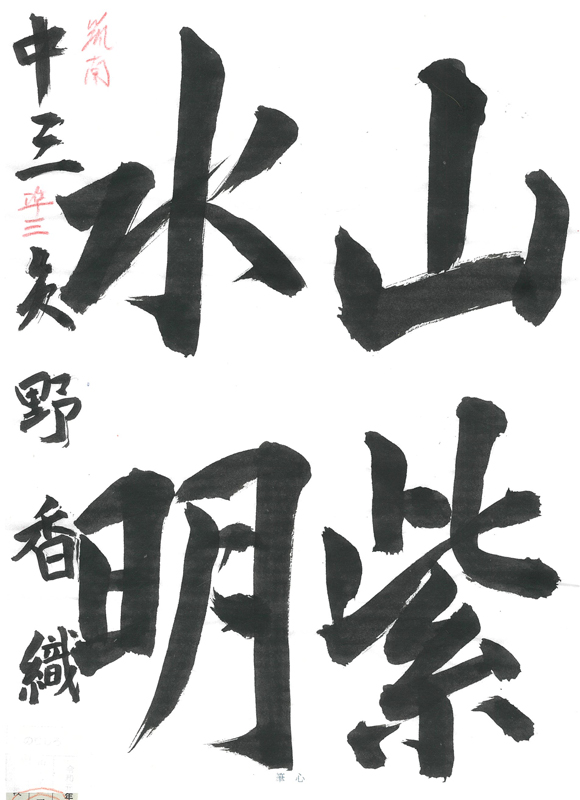 山紫
水明
筑南
中三 準三 矢野香織
筆心
年